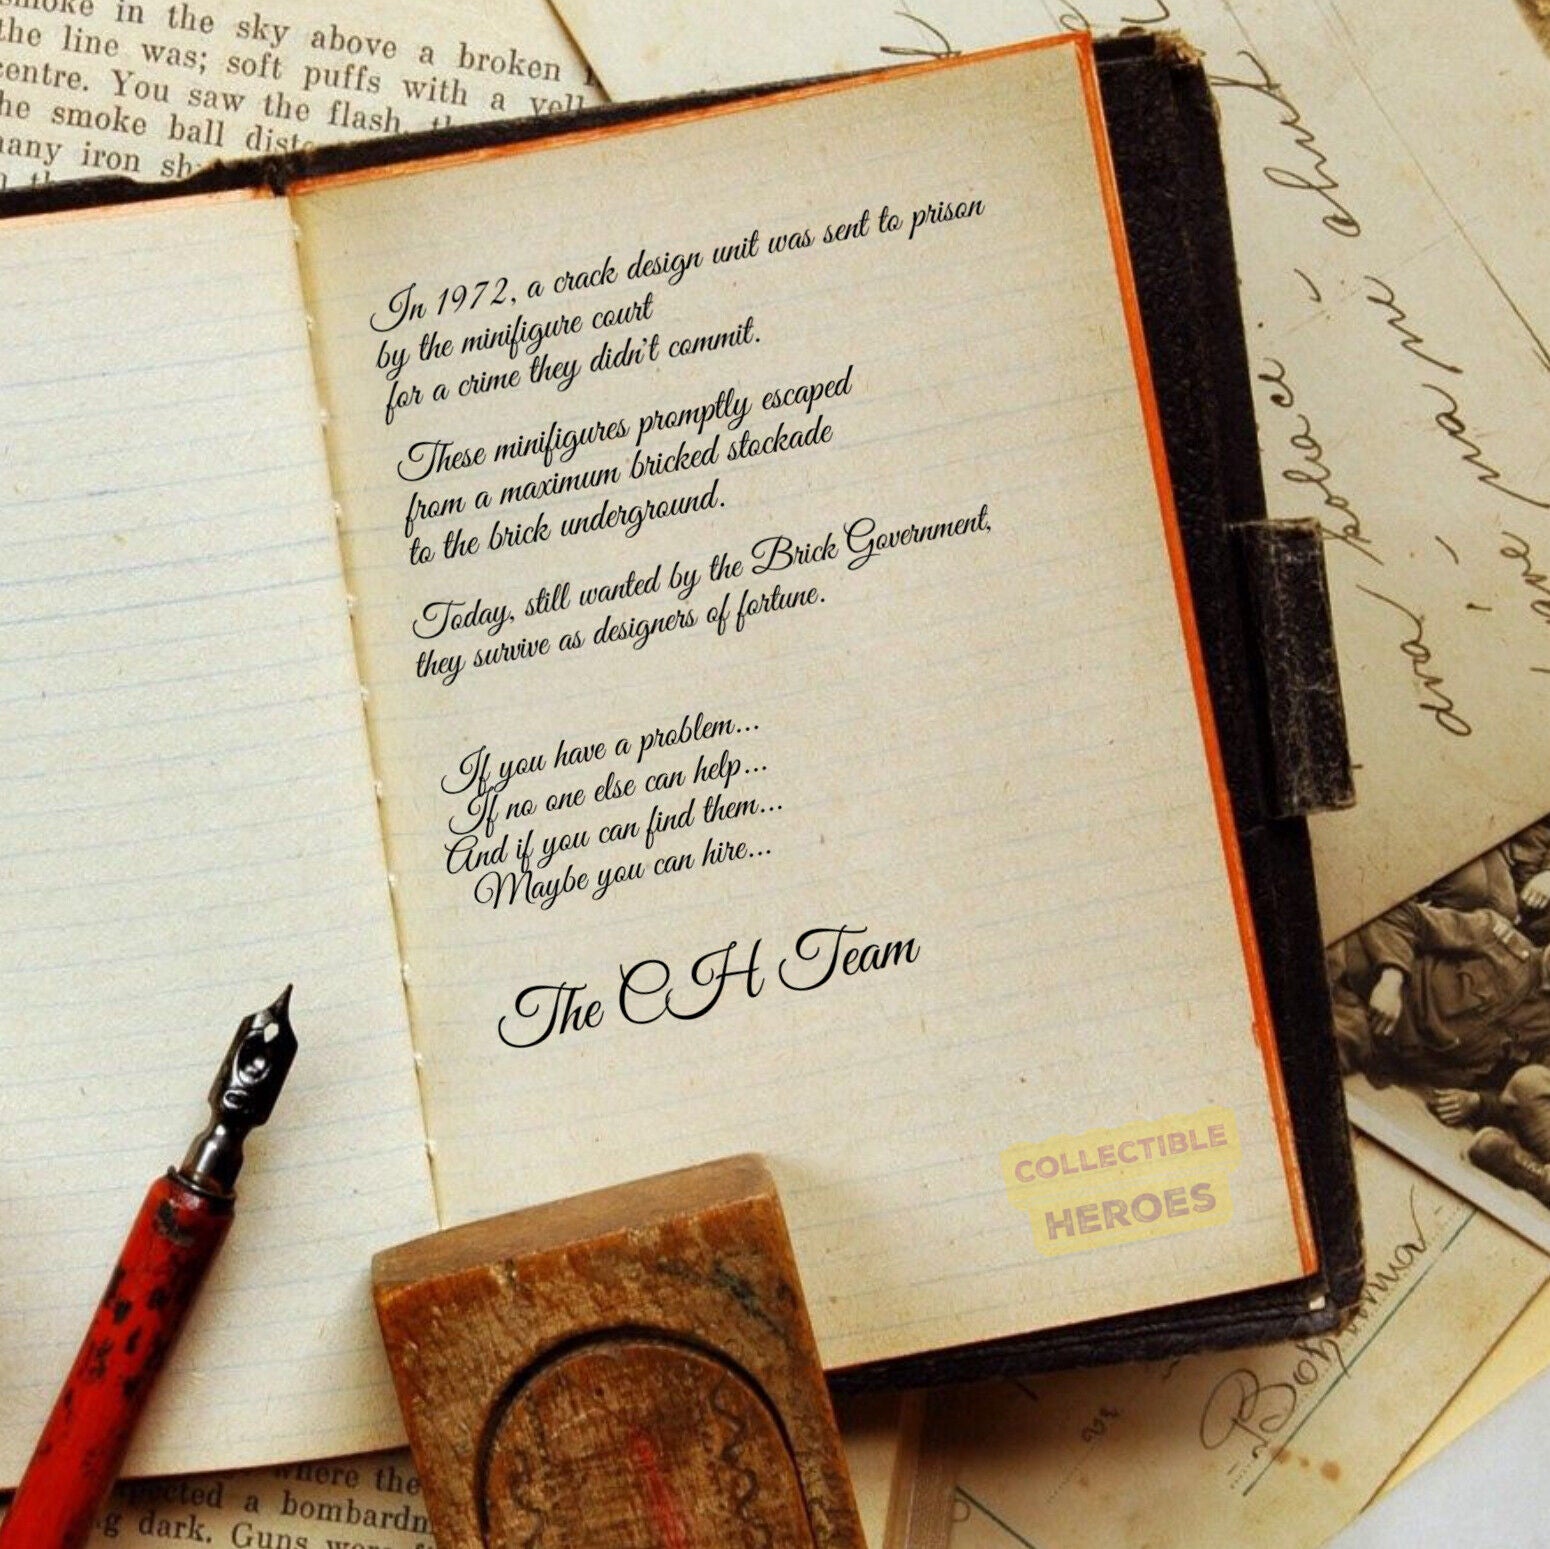 smoke in the sky above a broken
the line was; soft puffs with a yell
centre. You saw the flash,
he smoke ball
many iron
In 1972, a crack design unit was sent to prison
by the minifigure court
for a crime they didn't commit.
These minifigures promptly escaped
from a maximum bricked stockade
to the brick underground.
Today, still wanted by the Brick Government,
they survive as designers of fortune.
If you have a problem...
If no one else can help...
And if you can find them...
Maybe you can hire...
The CH Team
COLLECTIBLE
HEROES
where the
a bombardm
dark. Guns were